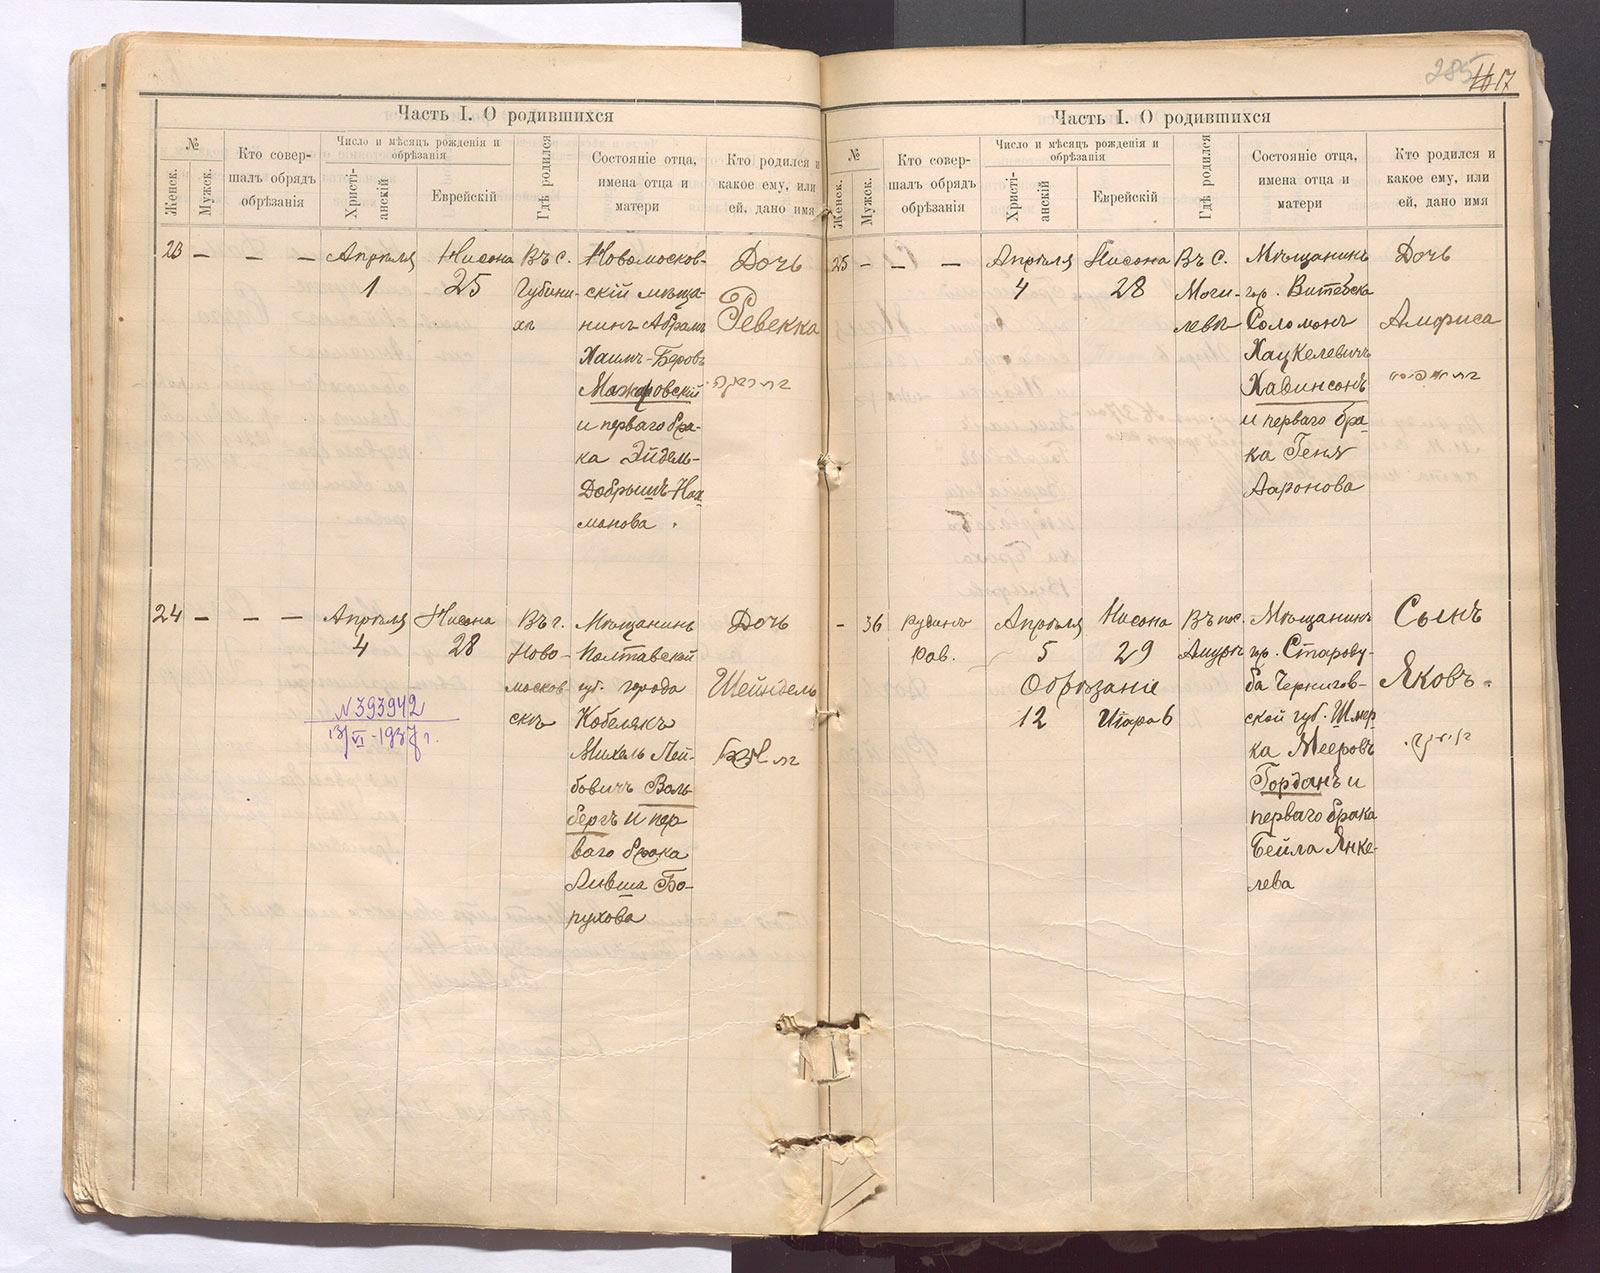 Часть I. О родившихся
№
Женск.
Мужск.
Кто совер-
шалъ обрядъ
обрѣзанія
Число и мѣсяцъ рожденія и
обрѣзанія
Христі-
анскій
Еврейскій
Гдѣ родился
Состояніе отца,
имена отца и
матери
Кто родился и
какое ему, или
ей, дано имя
23 — — — Апрѣля
1
Нисона
25
Въ с.
Губини-
хѣ
Новомосков-
скій мѣща-
нинъ Абрамъ
Хаимъ-Беровъ
и перваго бра-
ка Эйдель-
Добрышъ-Нах
манова.
Дочь
Ревекка
24 — — — Апрѣля
4
№ 393942
13/VI-1937 г.
Нисона
28
Въ г.
Ново-
москов
скѣ
Мѣщанинъ
Полтавской
губ. города
Кобелякъ
Михель Лей-
бовичъ Воль
бергъ и пер
ваго брака
Ливша Бо-
рухова
Дочь
Шейндель
285
16 17
Часть I. О родившихся
№
Женск.
Мужск.
Кто совер-
шалъ обрядъ
обрѣзанія
Число и мѣсяцъ рожденія и
обрѣзанія
Христі-
анскій
Еврейскій
Гдѣ родился
Состояніе отца,
имена отца и
матери
Кто родился и
какое ему, или
ей, дано имя
25 — — — Апрѣля
4
Нисона
28
Въ с.
Моги-
левѣ
Мѣщанинъ
гор. Витебска
Соломонъ
Хацкелевичъ
Хавинсонъ
и перваго бра-
ка Геня
Ааронова
Дочь
— 36
Рубинъ
Рав.
Апрѣля
5
Нисона
29
Обрѣзаніе
12 Иіара 6
Въ пос.
Амурѣ
Мѣщанинъ
гор. Старову-
ба Чернигов-
ской губ. Шмер
ка Мееровъ
Горданъ и
перваго брака
Бейла Янке-
лева
Сынъ
Яковъ.